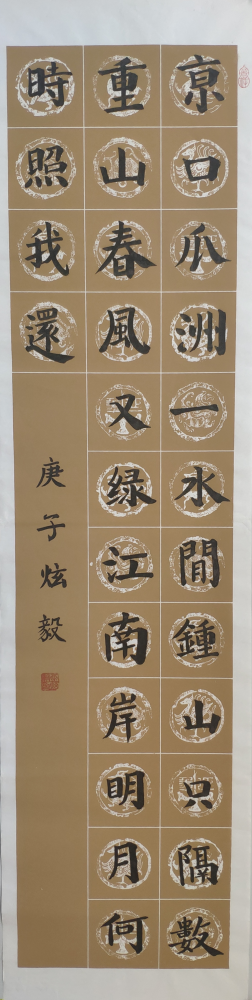 京口瓜洲一水間鍾山只隔數
重山春風又绿江南岸明月何
時照我還
庚子炫毅